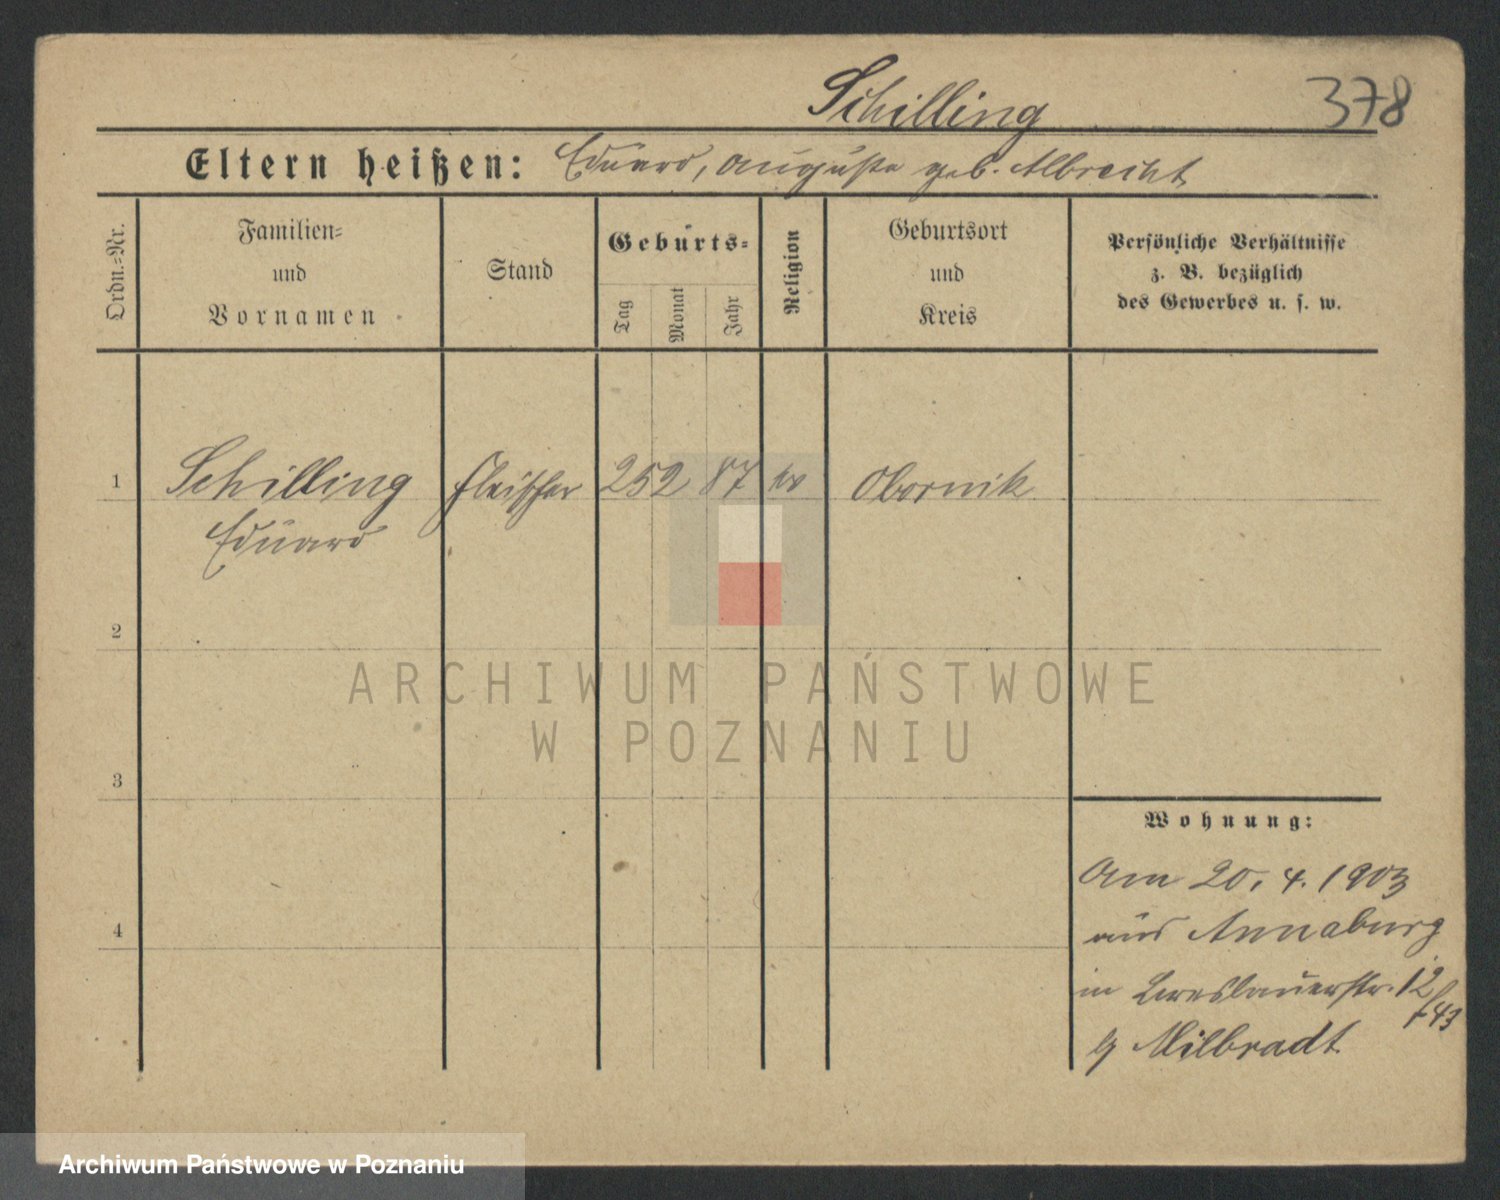 Schilling 378
Eltern heißen: Eduard, Auguste geb. Albrecht
Ordn.-Nr.
Familien-
und
Vornamen
Stand
Geburts-
Tag
Monat
Jahr
Religion
Geburtsort
und
Kreis
Persönliche Verhältnisse
z. B. bezüglich
des Gewerbes u. s. w.
1 Schilling Fleischer 25 2 87 ev Obornik
Eduard
2
3
4
Wohnung:
Am 20. 4. 1903
aus Annaburg
in Breslauerstr. 12
b/ Milbradt
ARCHIWUM PAŃSTWOWE
W POZNANIU
Archiwum Państwowe w Poznaniu